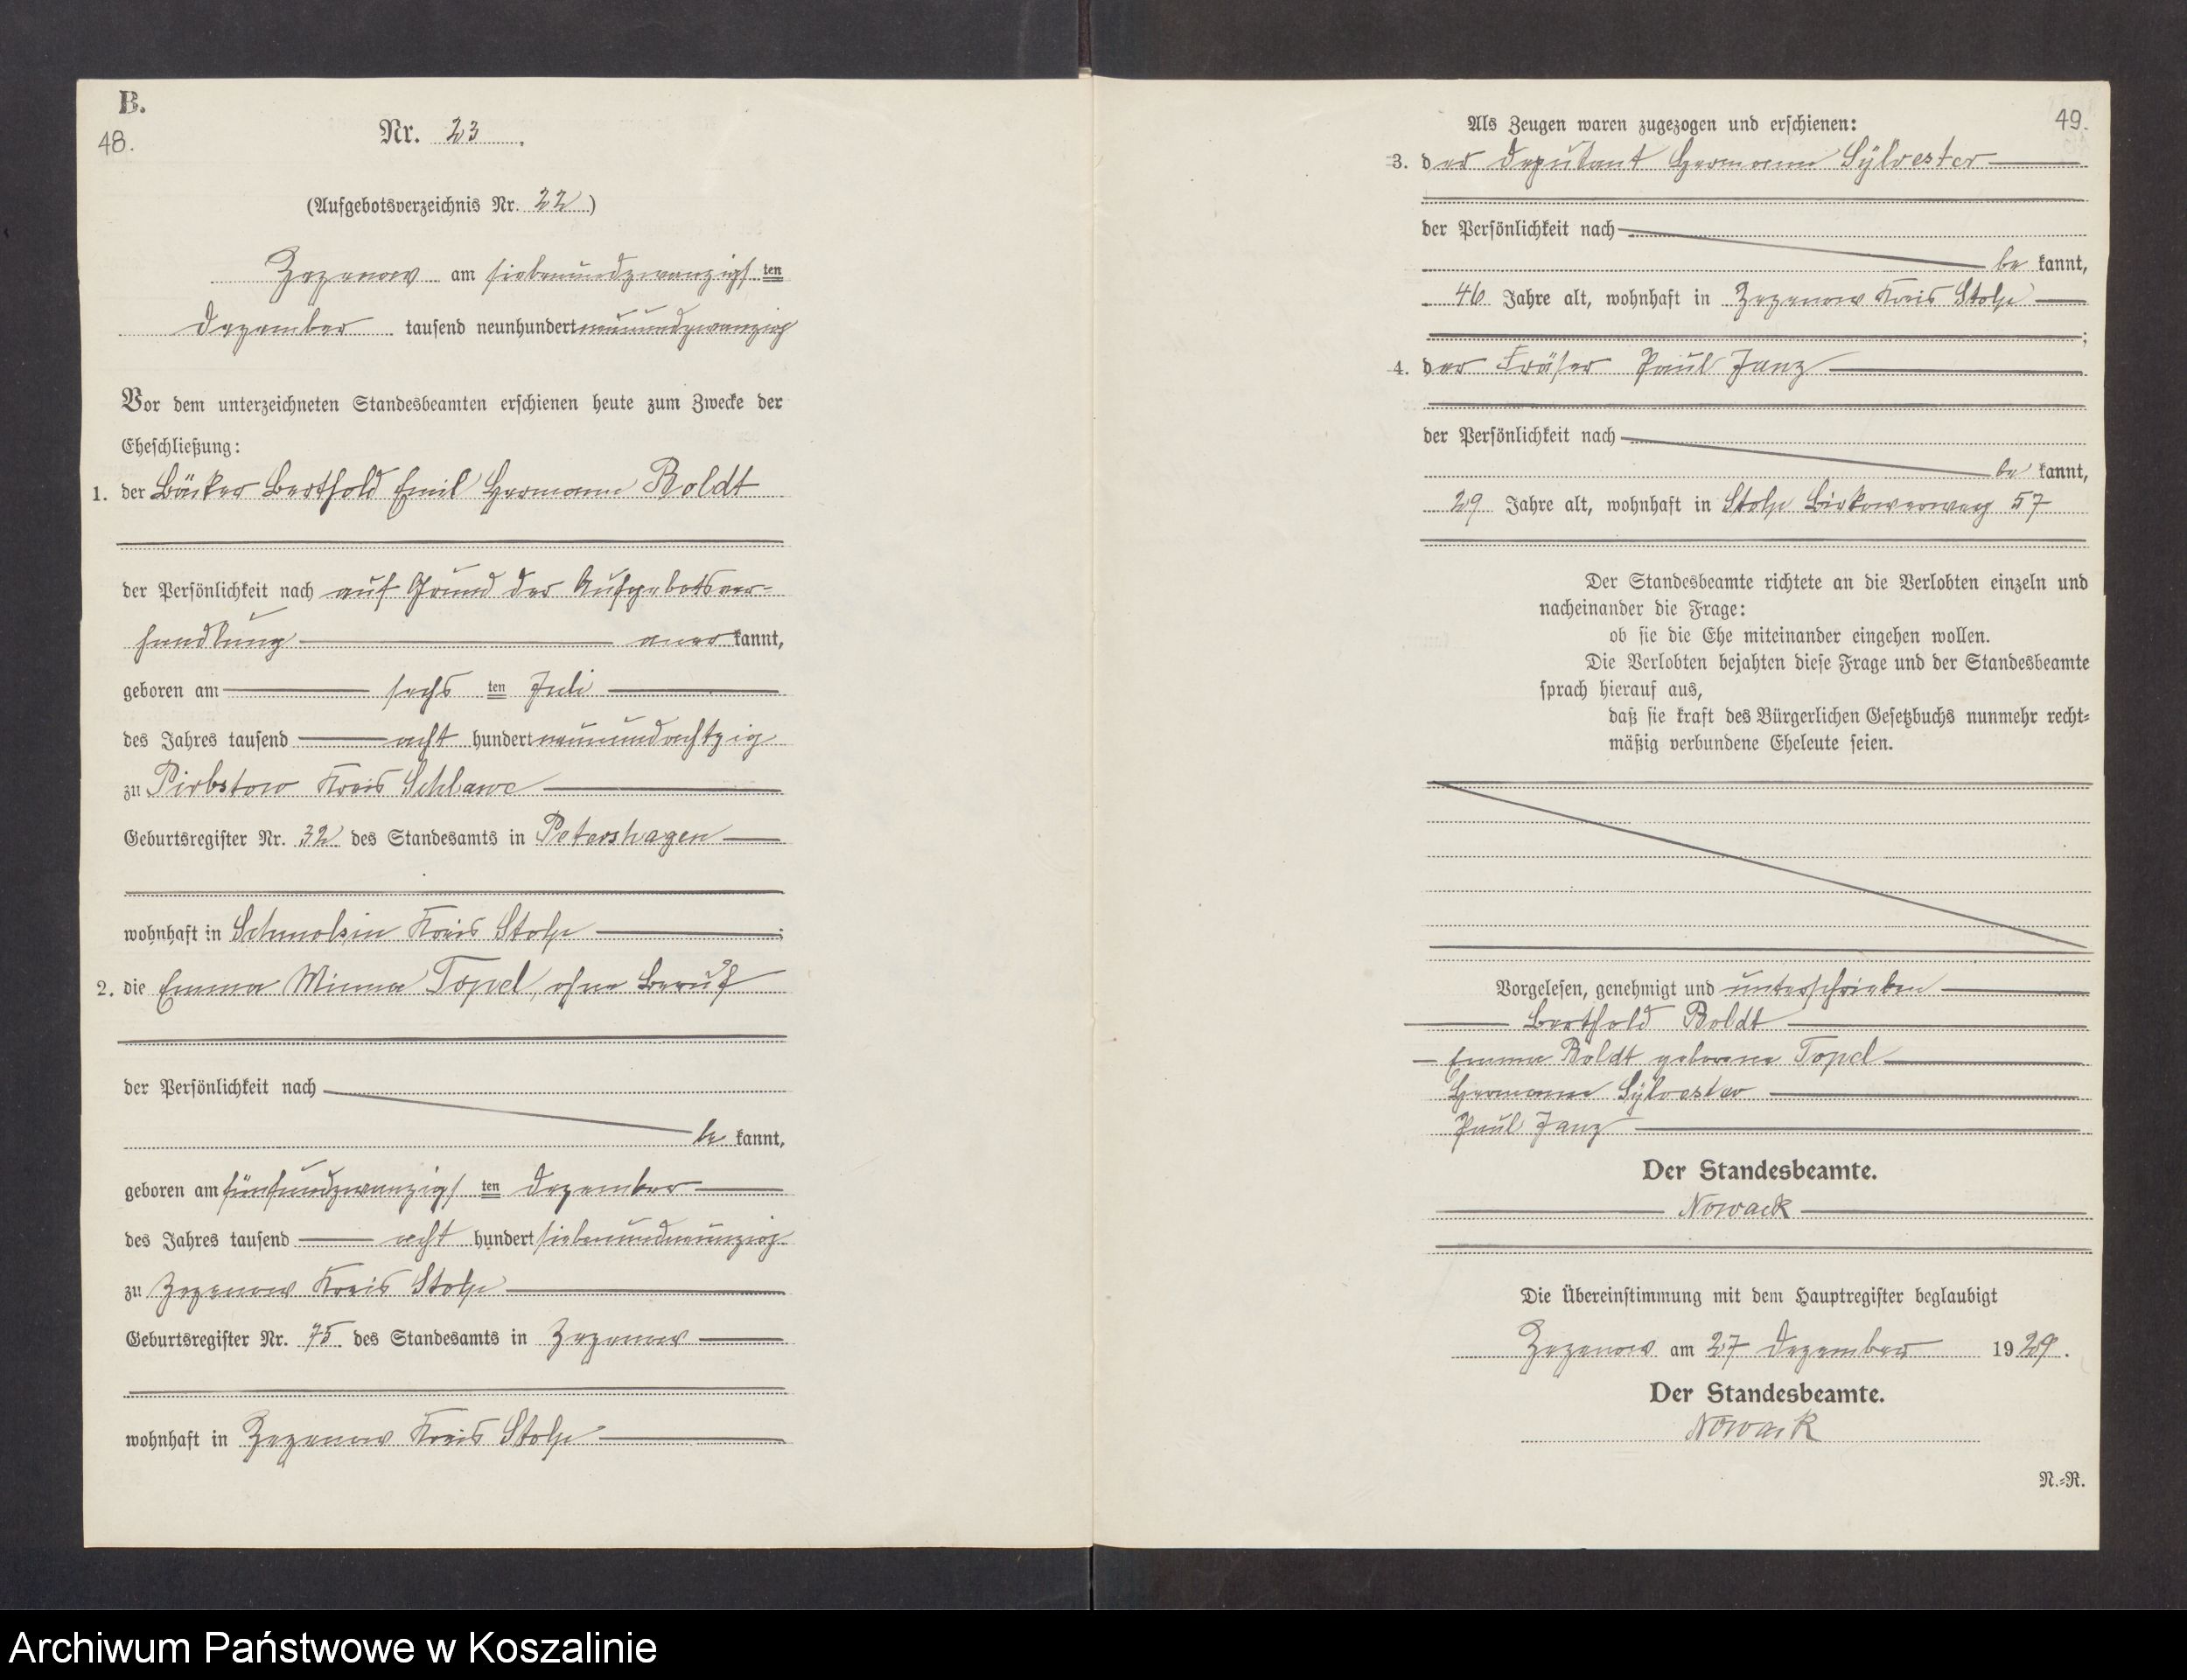 B.
48.
Nr. 23.
(Aufgebotsverzeichnis Nr. 22)
Zezenow am siebenundzwanzigsten
Dezember tausend neunhundert neunundzwanzig
Vor dem unterzeichneten Standesbeamten erschienen heute zum Zwecke der
Eheschließung:
1. der Bäcker Berthold Emil Hermann Boldt
der Persönlichkeit nach auf Grund der Aufgebotsver-
handlung anerkannt,
geboren am sechsten Juli
des Jahres tausend acht hundert neunundachtzig
zu Pirbstow Kreis Schlawe
Geburtsregister Nr. 32 des Standesamts in Petershagen
wohnhaft in Schmolsin Kreis Stolp;
2. die Emma Minna Topel, ohne Beruf
der Persönlichkeit nach
bekannt,
geboren am fünfundzwanzigsten Dezember
des Jahres tausend acht hundert siebenundneunzig
zu Zezenow Kreis Stolp
Geburtsregister Nr. 75 des Standesamts in Zezenow
wohnhaft in Zezenow Kreis Stolp
49.
Als Zeugen waren zugezogen und erschienen:
3. der Deputant Hermann Sylvester
der Persönlichkeit nach
bekannt,
46 Jahre alt, wohnhaft in Zezenow Kreis Stolp
;
4. der Fräser Paul Janz
der Persönlichkeit nach
bekannt,
29 Jahre alt, wohnhaft in Stolp Birkowerweg 57
Der Standesbeamte richtete an die Verlobten einzeln und
nacheinander die Frage:
ob sie die Ehe miteinander eingehen wollen.
Die Verlobten bejahten diese Frage und der Standesbeamte
sprach hierauf aus,
daß sie kraft des Bürgerlichen Gesetzbuchs nunmehr recht-
mäßig verbundene Eheleute seien.
Vorgelesen, genehmigt und unterschrieben
Berthold Boldt
Emma Boldt geborene Topel
Hermann Sylvester
Paul Janz
Der Standesbeamte.
Nowack
Die Übereinstimmung mit dem Hauptregister beglaubigt
Zezenow am 27 Dezember 1929.
Der Standesbeamte.
Nowack
N.-R.
Archiwum Państwowe w Koszalinie